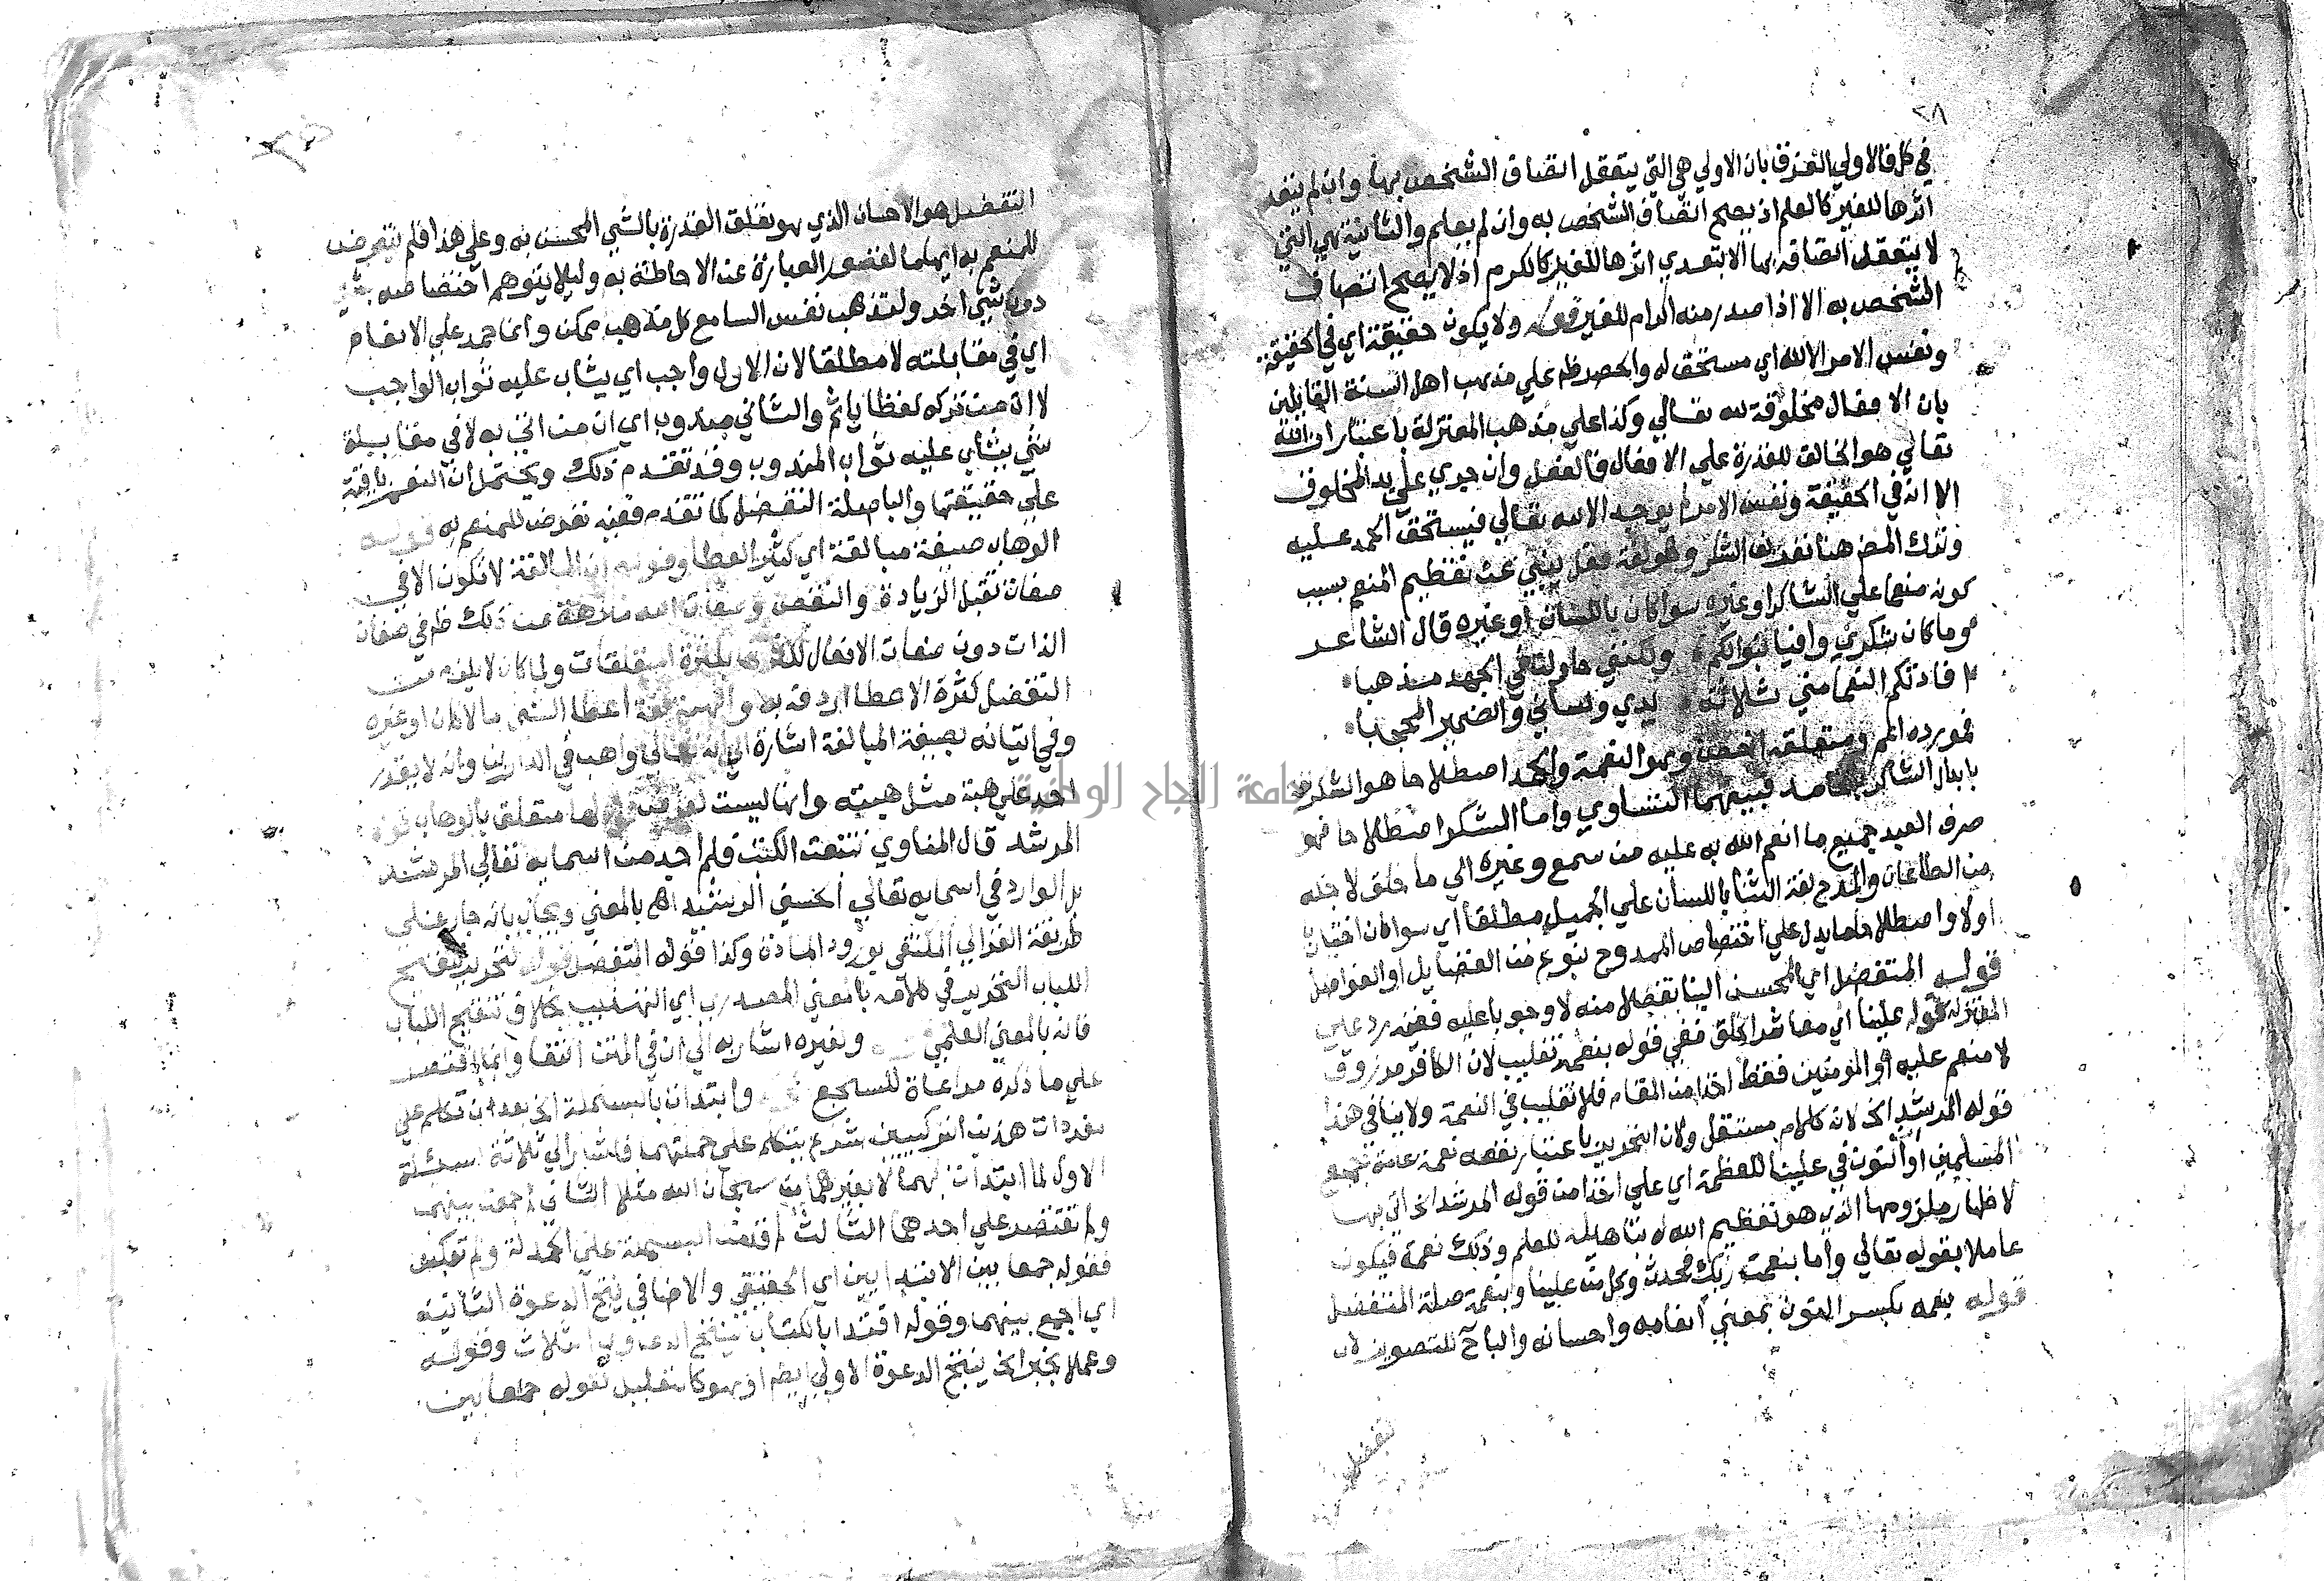 ٢٨
في كل فالاولي الفرق بان الاولي هي التي يتعقل اتصاف الشخص بها وان لم يتعد
اثرها للغير كالعلم اذ يصح اتصاف الشخص به وان لم يعلم والثانية هي التي
لا يتعقل اتصافه بها الا بتعدي اثرها للغير كالكرم اذ لا يصح اتصاف
الشخص به الا اذا صدر منه اكرام للغير قوله ولا يكون حقيقة اي في الحقيقة
ونفس الامر الا لله اي مستحق له والحصر ظم علي مذهب اهل السنة القايلين
بان الافعال مخلوقة لله تعالي وكذا علي مذهب المعتزلة باعتبار ان الله
تعالي هو الخالق للقدرة علي الافعال فالفعل وان جري علي يد المخلوق
الا انه في الحقيقة ونفس الامر لم يوجد الا لله تعالي فيستحق الحمد عليه
وترك المص هنا تعريف الشكر وهو لغة فعل ينبي عن تعظيم المنعم بسبب
كونه منعما علي الشاكر او غيره سوا كان باللسان او غيره قال الشاعر
وما كان شكري وافيا بنوالكم ولكنني حاولت في الجهد مذهبا
افادتكم النعما مني ثلاثة يدي ولساني والضمير المحجبا
فمورده اعم ومتعلقه اخص وهو النعمة والحمد اصطلاحا هو الشكر لغة
بابدال الشاكر بالحامد فبينهما التساوي واما الشكر اصطلاحا فهو
صرف العبد جميع ما انعم الله به عليه من سمع وغيره الي ما خلق لاجله
من الطاعات والمدح لغة الثنا باللسان علي الجميل مطلقا اي سوا كان اختياريا
اولا واصطلاحا ما يدل علي اختصاص الممدوح بنوع من الفضايل او الفواضل
قوله المتفضل اي المحسن الينا تفضلا منه لا وجوبا عليه ففيه رد علي
المعتزلة قوله علينا اي معاشر الخلق ففي قوله بنعمه تغليب لان الكافر مرزوق
لا منعم عليه او المؤمنين فقط اخذا من المقام فلا تغليب في النعمة ولا ينافي هذا
قوله المرشد الخ لانه كلام مستقل ولان التحرير باعتبار نفعه نعمة عامة لجميع
المسلمين او النون في علينا للعظمة اي علي اخذا من قوله المرشد الخ اتي بها
لاظهار ملزومها الذي هو تعظيم الله له بتاهيله للعلم وذلك نعمة فيكون
عاملا بقوله تعالي واما بنعمة ربك فحدث وكل من علينا وبنعمه صلة المتفضل
قوله بنعمه بكسر النون بمعني انعامه واحسانه والبا للتصوير لان
تفضل
التفضل هو الاحسان الذي هو تعلق القدرة بالشي المحسن به وعلي هذا فلم يتعرض
للمنعم به ايهاما لقصور العبارة عن الاحاطة به وليلا يتوهم اختصاصه بشي
دون شي اخر ولتذهب نفس السامع كل مذهب ممكن وانما حمد علي الانعام
اي في مقابلته لا مطلقا لان الاول واجب اي يثاب عليه ثواب الواجب
لا ان من تركه لفظا ياثم والثاني مندوب اي ان من اتي به لا في مقابلة
شي يثاب عليه ثواب المندوب وقد تقدم ذلك ويحتمل ان النعم باقية
علي حقيقتها والبا صلة التفضل كما تقدم ففيه تعرض للمنعم به قوله
الوهاب صيغة مبالغة اي كثير العطا وقولهم ان المبالغة لا تكون الا في
صفات تقبل الزيادة والنقص وصفات الله منزهة عن ذلك ظم في صفات
الذات دون صفات الافعال لكثرتها بكثرة المتعلقات ولما كان لا يلزم من
التفضل كثرة الاعطا اردفه به والهبة لغة اعطا الشي مالا كان او غيره
وفي اتيانه بصيغة المبالغة اشارة الي انه تعالي واهب في الدارين وانه لا يقدر
احد علي هبة مثل هبته وانها ليست لغرض متعلق بالوهاب قوله
المرشد قال المناوي تتبعت الكتب فلم اجد من اسمايه تعالي المرشد
بل الوارد في اسمايه تعالي الحسني الرشيد اهم بالمعني ويجاب بانه جار علي
طريقة الغزالي المكتفي بورود المادة وكذا قوله المتفضل قوله لتحرير تنقيح
اللباب التحرير في كلامه بالمعني المصدري اي التهذيب بخلاف تنقيح اللباب
فانه بالمعني العلمي وغيره اشار به الي ان في المتن اكتفا وانما اقتصر
علي ما ذكره مراعاة للسجع وابتدات بالبسملة الخ بعد ان تكلم علي
مفردات هذين التركيبين شرع يتكلم علي جملتهما فاشار الي ثلاثة اسئلة
الاول لما ابتدات بهما لا بغيرهما من سبحان الله مثلا الثاني لم جمعت بينهما
ولم تقتصر علي احدهما الثالث لم قدمت البسملة علي الحمدلة ولم تعكس
فقوله جمعا بين الابتدايين اي الحقيقي والاضافي ينتج الدعوة الثانية
اي اجمع بينهما وقوله اقتدا بالكتاب ينتج الدعوي الثلاث وقوله
وعملا بخبر الخ ينتج الدعوة الاولي ايضم او هو كالتعليل لقوله جمعا بين
جامعة النجاح الوطنية